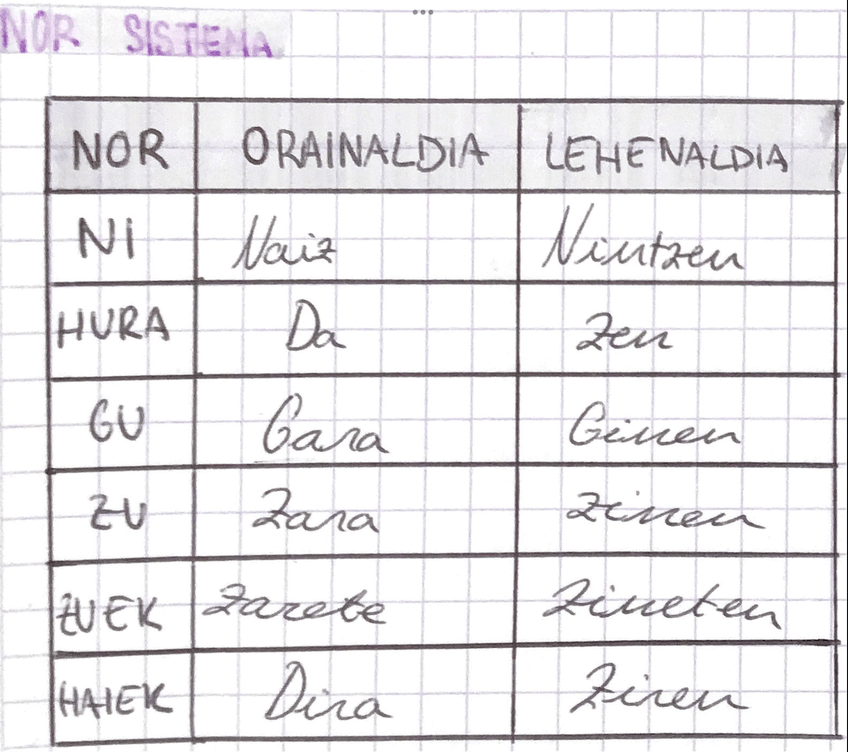 NOR SISTEMA
NOR ORAINALDIA LEHENALDIA
NI Naiz Nintzen
HURA Da Zen
GU Gara Ginen
ZU Zara Zinen
ZUEK Zarete Zineten
HAIEK Dira Ziren